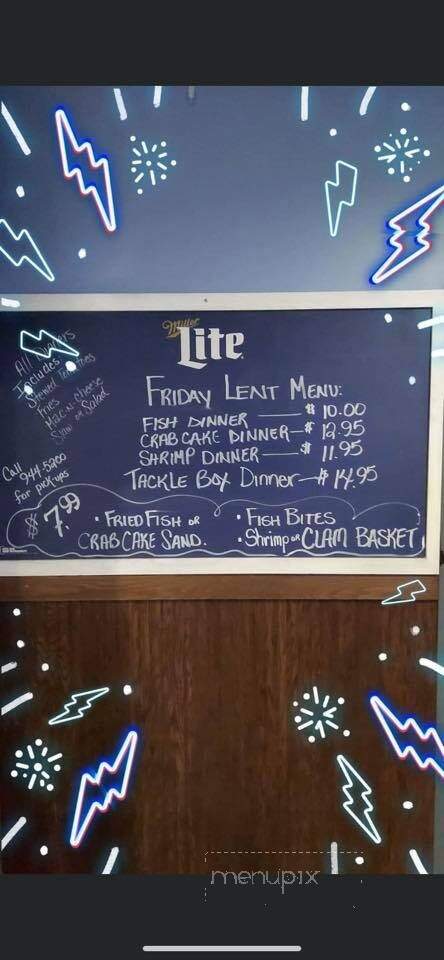 Miller
Lite
FRIDAY LENT MENU:
FISH DINNER — $ 10.00
CRAB CAKE DINNER — $ 12.95
SHRIMP DINNER — $ 11.95
TACKLE BOX DINNER — $ 14.95
All
Includes
Stewed Tomatoes
Fries
Mac-n-cheese
Slaw or Salad
Call
944-5200
for pick-ups
$ 7.99
• FRIED FISH OR
CRAB CAKE SAND.
• FISH BITES
• Shrimp OR CLAM BASKET
menupix